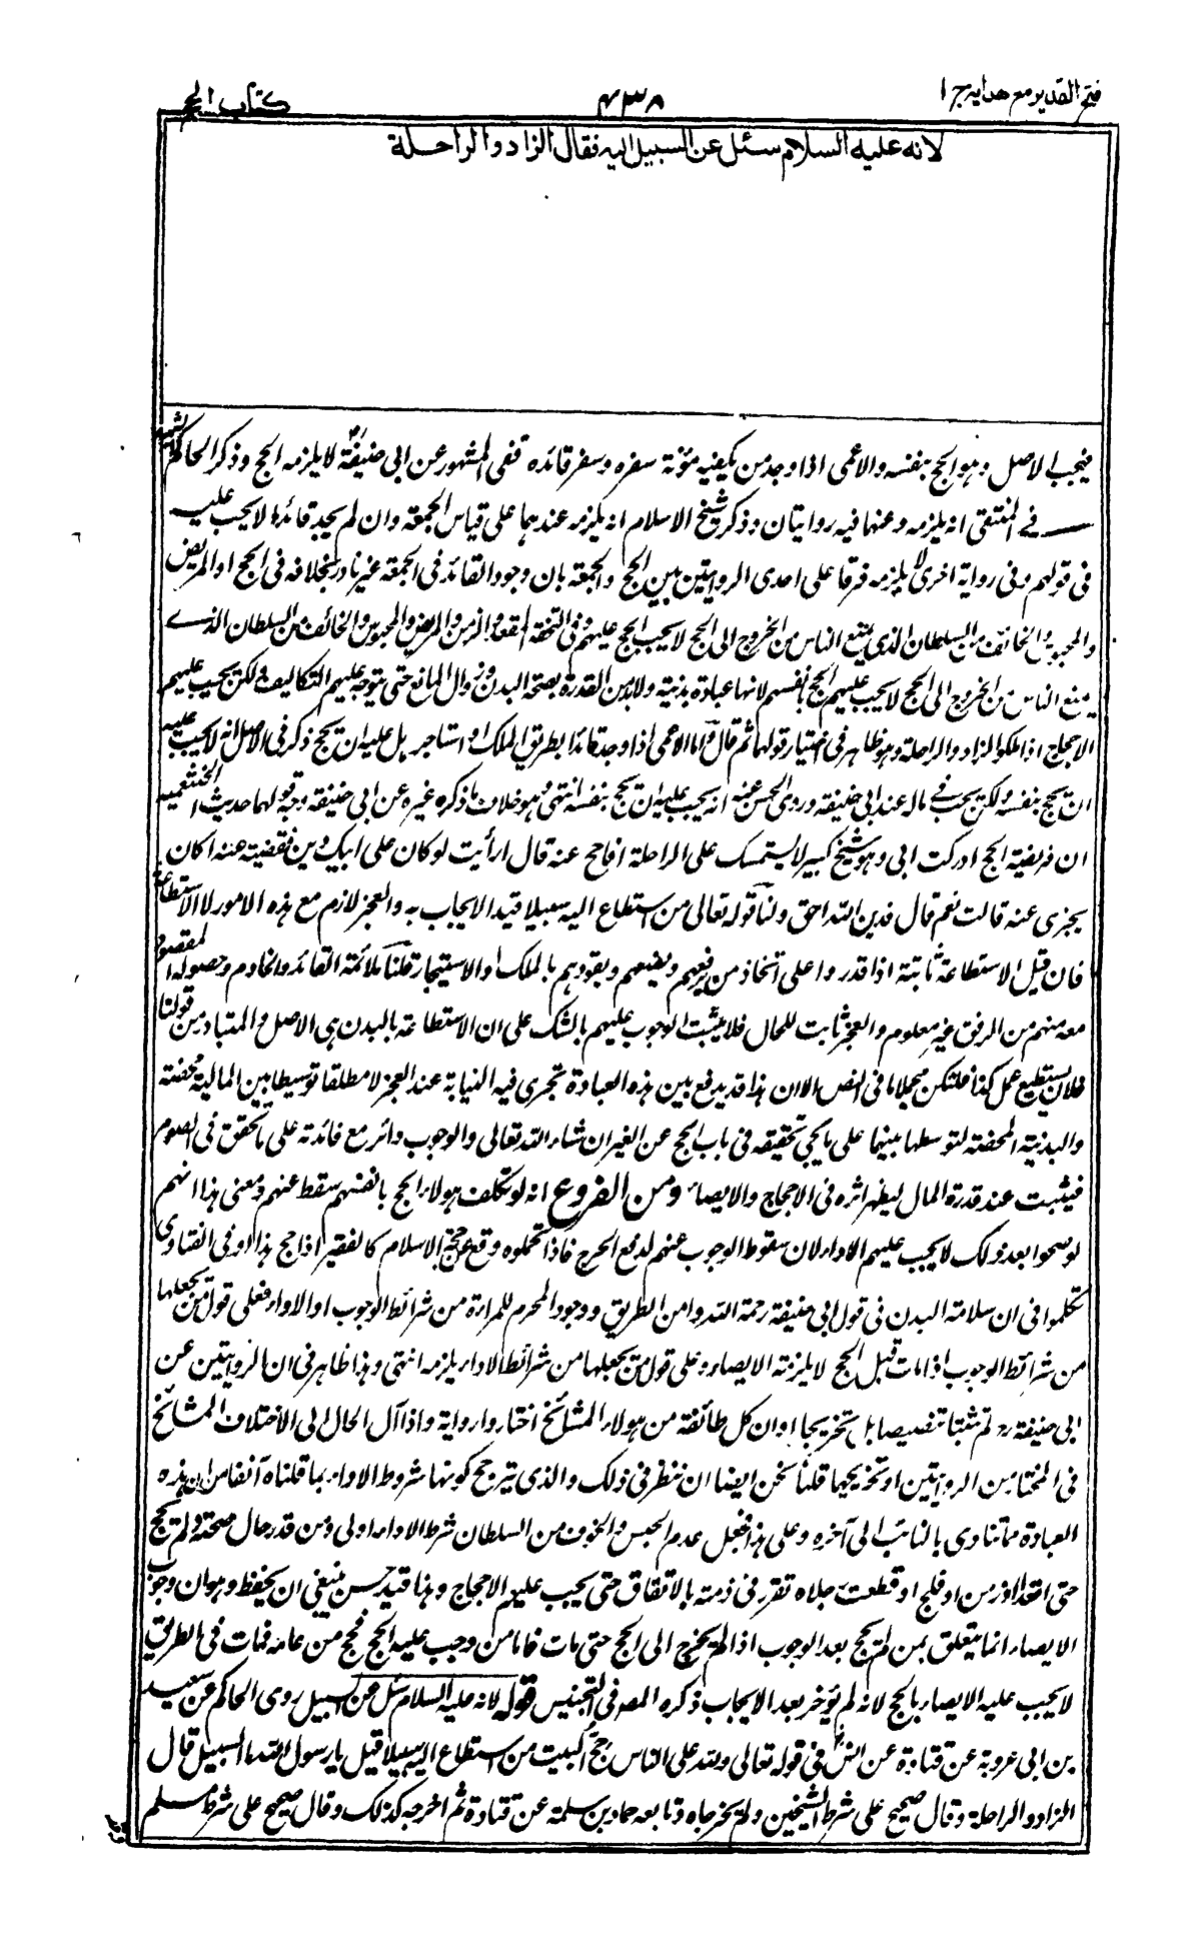 فتح القدير مع هدايه ج ١
٤٣٨
كتاب الحج
لانه عليه السلام سئل عن السبيل اليه فقال الزاد والراحلة
فيجب الاصل وهو الحج بنفسه والاعمى اذا وجد من يكفيه مؤنة سفره وسفر قائده ففي المشهور عن ابي حنيفة رح لا يلزمه الحج وذكر الحاكم الشهيد
في المنتقى انه يلزمه وعنهما فيه روايتان وذكر شيخ الاسلام انه يلزمه عندهما على قياس الجمعة وان لم يجد قائدا لا يجب عليه
في قولهم وفي رواية اخرى لا يلزمه فرقا على احدى الروايتين بين الحج والجمعة بان وجود القائد في الجمعة غير نادر بخلافه في الحج او المريض
والمحبوس والخائف من السلطان الذي يمنع الناس من الخروج الى الحج لا يجب الحج عليهم وفي التحفة المقعد والزمن والمريض والمحبوس والخائف من السلطان الذے
يمنع الناس من الخروج الى الحج لا يجب عليهم الحج بانفسهم لانها عبادة بدنية ولا بد من القدرة بصحة البدن وزوال المانع حتى يتوجه عليهم التكاليف ولكن يجب عليهم
الاحجاج اذا ملكوا الزاد والراحلة وهو ظاهر في اختيار قولهما ثم قال واما الاعمى اذا وجد قائدا بطريق الملك او استاجر بل عليه ان يحج ذكر في الاصل انه لا يجب عليه
ان يحج بنفسه ولكن يجب في ماله عند ابي حنيفة وروى الحسن عنه انه يجب عليه ان يحج بنفسه انتهى وهو خلاف ما ذكره غيره عن ابي حنيفة وجه قولهما حديث الخثعمية
ان فريضة الحج ادركت ابي وهو شيخ كبير لا يستمسك على الراحلة افاحج عنه قال ارأيت لو كان على ابيك دين فقضيته عنه اكان
يجزى عنه قالت نعم قال فدين الله احق ولنا قوله تعالى من استطاع اليه سبيلا قيد الايجاب به والعجز لازم مع هذه الامور لا الاستطاعة
فان قيل الاستطاعة ثابتة اذا قدروا على اتخاذ من يرفعهم ويضعهم ويقودهم بالملك او الاستيجار قلنا ملائمة القائد والخادم وحصول المقصود
معه منهم من الرفق غير معلوم والعجز ثابت للحال فلا يثبت الوجوب عليهم بالشك على ان الاستطاعة بالبدن هي الاصل والمتبادر من قولنا
فلان يستطيع عمل كذا فلتكن محملا ما في النص الا ان هذا قد يدفع بين هذه العبادة تجرى فيه النيابة عند العجز لا مطلقا توسيطا بين المالية المحضة
والبدنية المحضة لتوسطها بينهما على ما يجي تحقيقه في باب الحج عن الغير ان شاء الله تعالى والوجوب دائر مع فائدته على ما تحقق في الصوم
فيثبت عند قدرة المال ليظهر اثره في الاحجاج والايصاء ومن الفروع انه لو تكلف هولاء الحج بانفسهم سقط عنهم ومعنى هذا انهم
لو صحوا بعد ذلك لا يجب عليهم الاداء لان سقوط الوجوب عنهم لدفع الحرج فاذا تحملوه وقع عن حجة الاسلام كالفقير اذا حج هذا وفي الفتاوى
تكلموا في ان سلامة البدن في قول ابي حنيفة رحمة الله وامن الطريق ووجود المحرم للمراءة من شرائط الوجوب او الاداء فعلى قول من يجعلها
من شرائط الوجوب اذا مات قبل الحج لا يلزمه الايصاء وعلى قول من يجعلها من شرائط الاداء يلزمه انتهى وهذا ظاهر في ان الروايتين عن
ابي حنيفة رح لم تثبتا تنصيصا بل تخريجا او ان كل طائفة من هولاء المشائخ اختاروا رواية واذا آل الحال الى الاختلاف المشائخ
في المختار من الروايتين او تخريجها قلنا نحن ايضا ان ننظر في ذلك والذى يترجح كونها شروط الاداء بما قلناه آنفا من ان هذه
العبادة مما تتادى بالنائب الى آخره وعلى هذا فجعل عدم الحبس والخوف من السلطان شرط الاداء اولى ومن قدر حال صحته ولم يحج
حتى اقعد او زمن او فلج او قطعت رجلاه تقرر في ذمته بالاتفاق حتى يجب عليهم الاحجاج وهذا قيد حسن ينبغي ان يحفظ وهو ان وجوب
الايصاء انما يتعلق بمن لم يحج بعد الوجوب اذا لم يخرج الى الحج حتى مات فاما من وجب عليه الحج فحج من عامه فمات في الطريق
لا يجب عليه الايصاء بالحج لانه لم يؤخر بعد الايجاب ذكره المصـ في التجنيس قوله لانه عليه السلام سئل عن السبيل روى الحاكم عن سعيد
بن ابي عروبة عن قتادة عن انس رض في قوله تعالى ولله على الناس حج البيت من استطاع اليه سبيلا قيل يا رسول الله ما السبيل قال
الزاد والراحلة وقال صحيح على شرط الشيخين ولم يخرجاه وتابعه حماد بن سلمة عن قتادة ثم اخرجه كذلك وقال صحيح على شرط مسلم